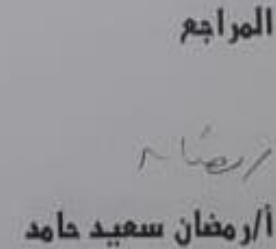 المراجع
أ/رمضان سعيد حامد